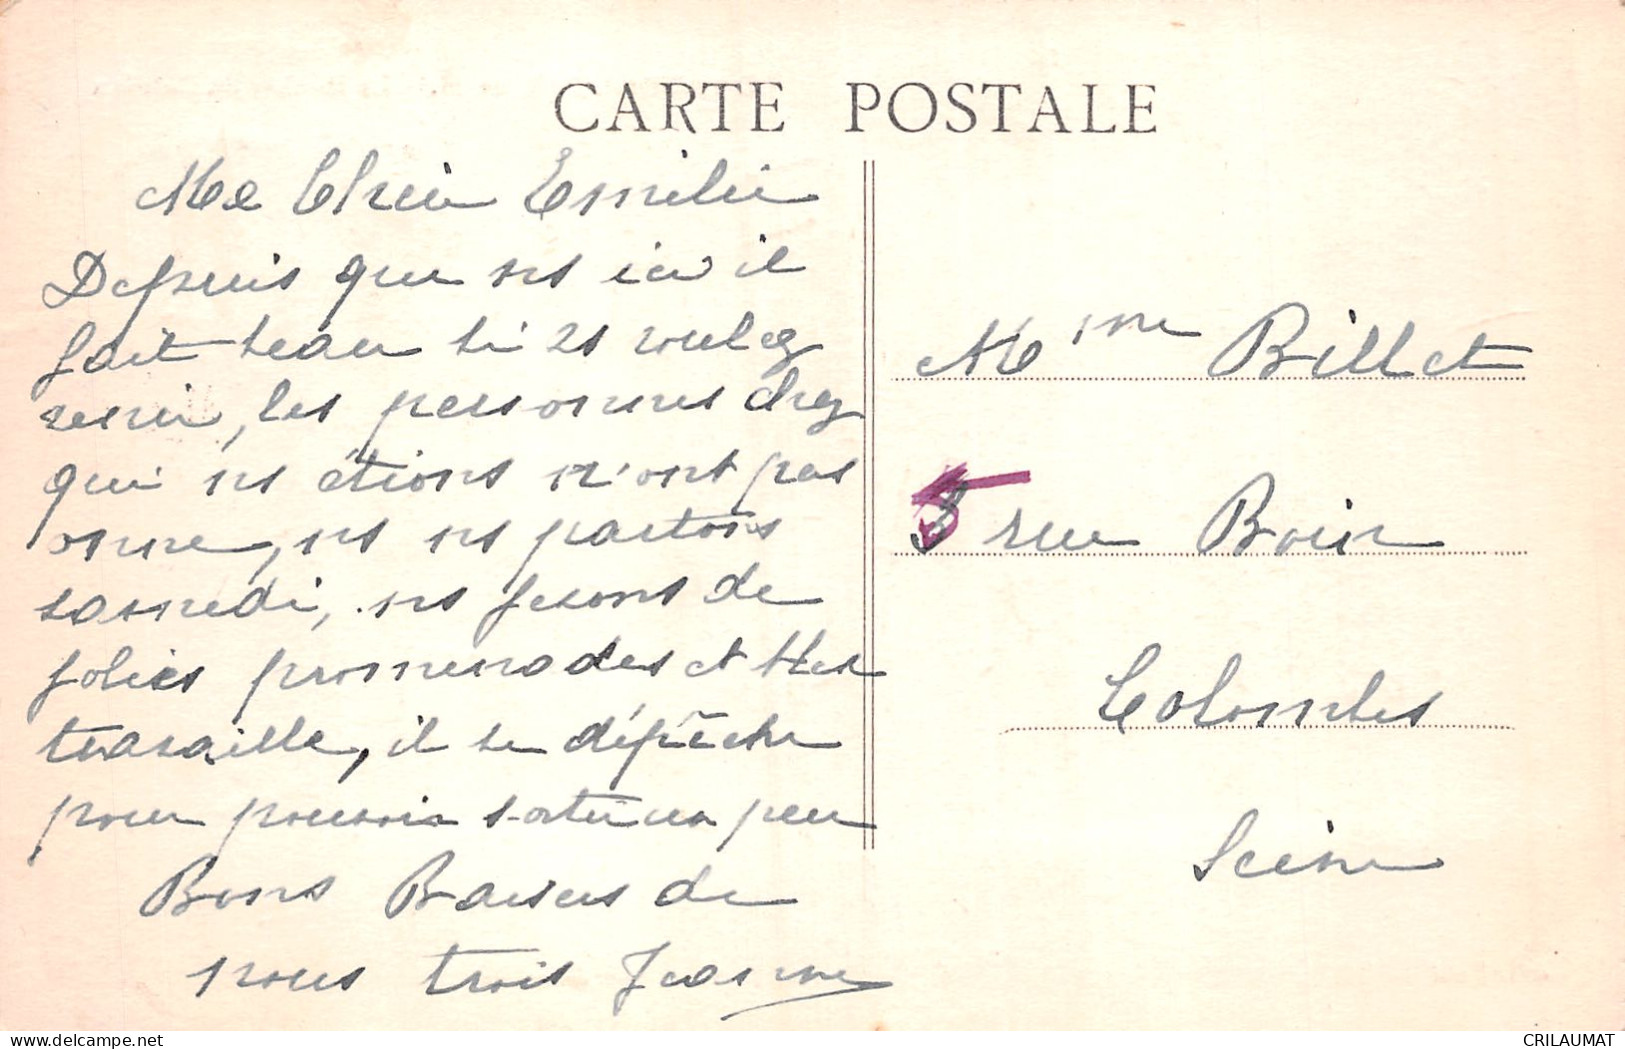 CARTE POSTALE
Ma Chère Emilie
Depuis que ns ici il
fait beau si vs voulez
venir, les personnes chez
qui ns étions n'ont pas
ns ns partons
samedi, ns fesons de
jolies promenades et
travaille, il se dépêche
pour pouvoir sortir un peu
Bons Baisers de
nous trois Jeanne
Mme Billet
rue Bouin
Colombes
Seine
delcampe.net
CRILAUMAT